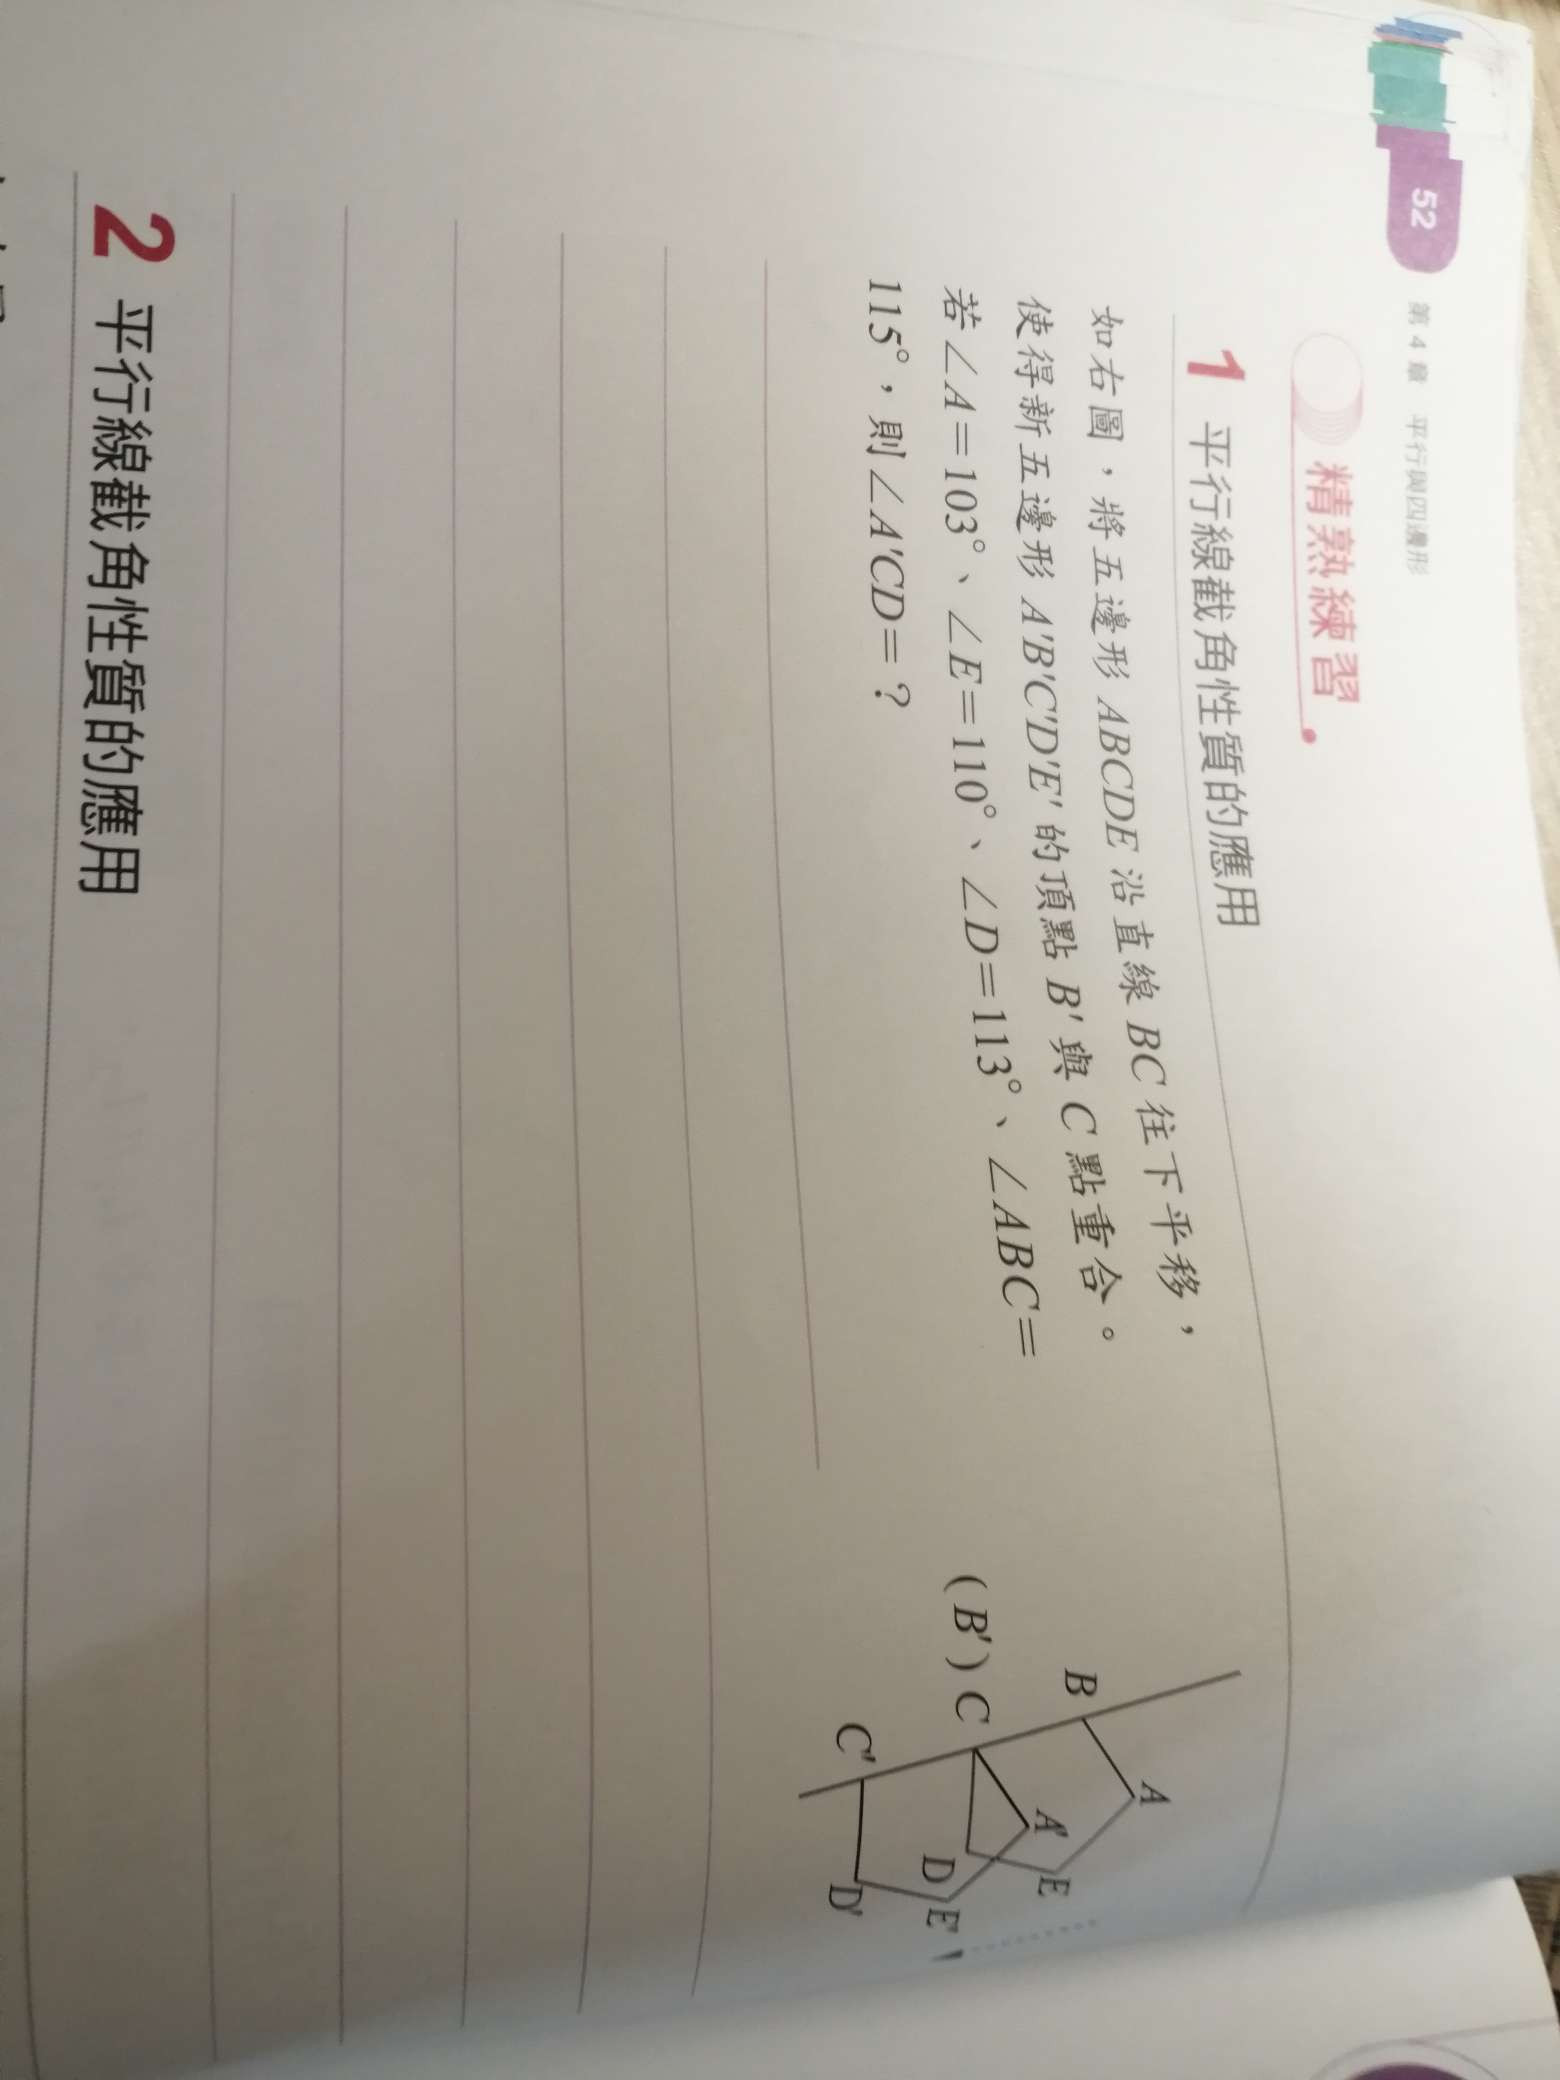 52
第4章 平行與四邊形
精熟練習
1 平行線截角性質的應用
如右圖，將五邊形 ABCDE 沿直線 BC 往下平移，
使得新五邊形 A'B'C'D'E' 的頂點 B' 與 C 點重合。
若∠A＝103°、∠E＝110°、∠D＝113°、∠ABC＝
115°，則∠A'CD＝？
A
B
E
A'
(B')C
D
E'
C'
D'
2 平行線截角性質的應用